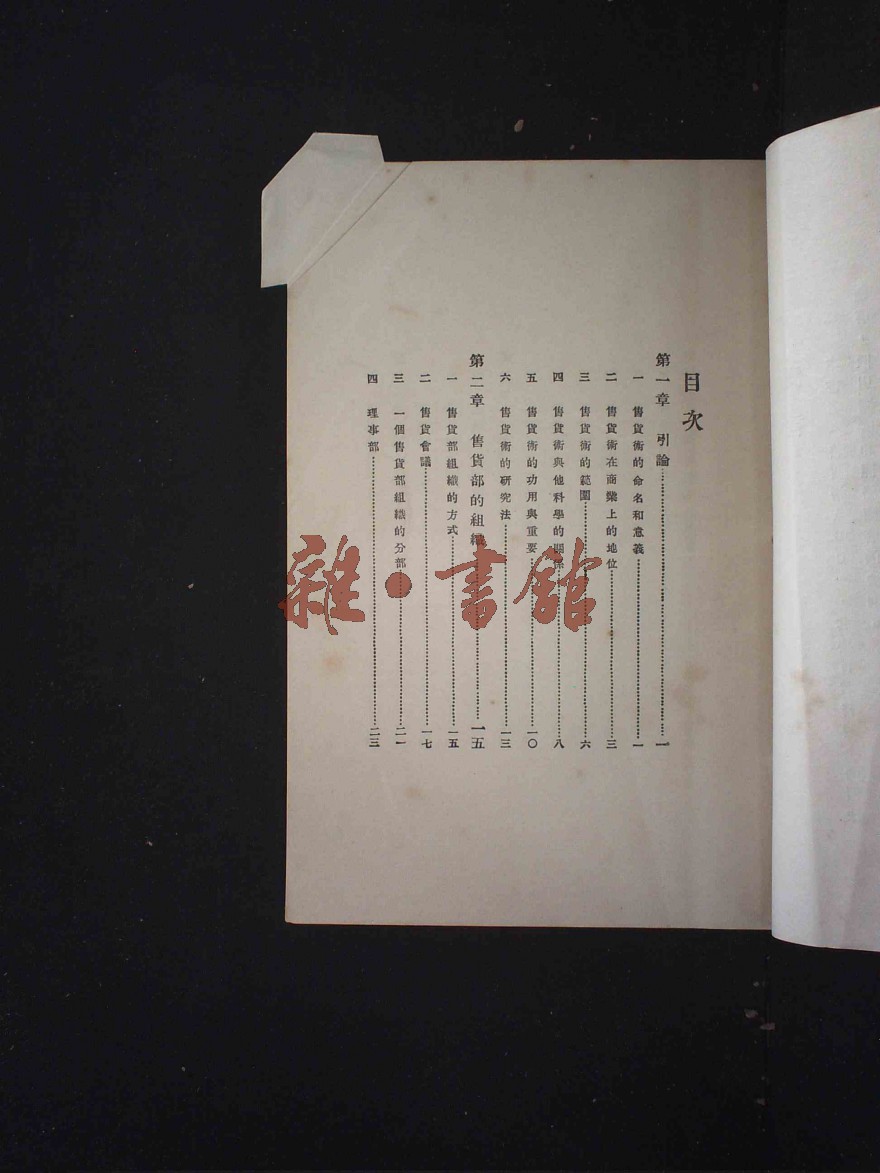 目次
第一章 引論……一
一 售貨術的命名和意義……一
二 售貨術在商業上的地位……三
三 售貨術的範圍……六
四 售貨術與他科學的關係……八
五 售貨術的功用與重要……一〇
六 售貨術的研究法……一三
第二章 售貨部的組織……一五
一 售貨部組織的方式……一五
二 售貨會議……一七
三 一個售貨部組織的分部……二一
四 理事部……二三
雜·書館